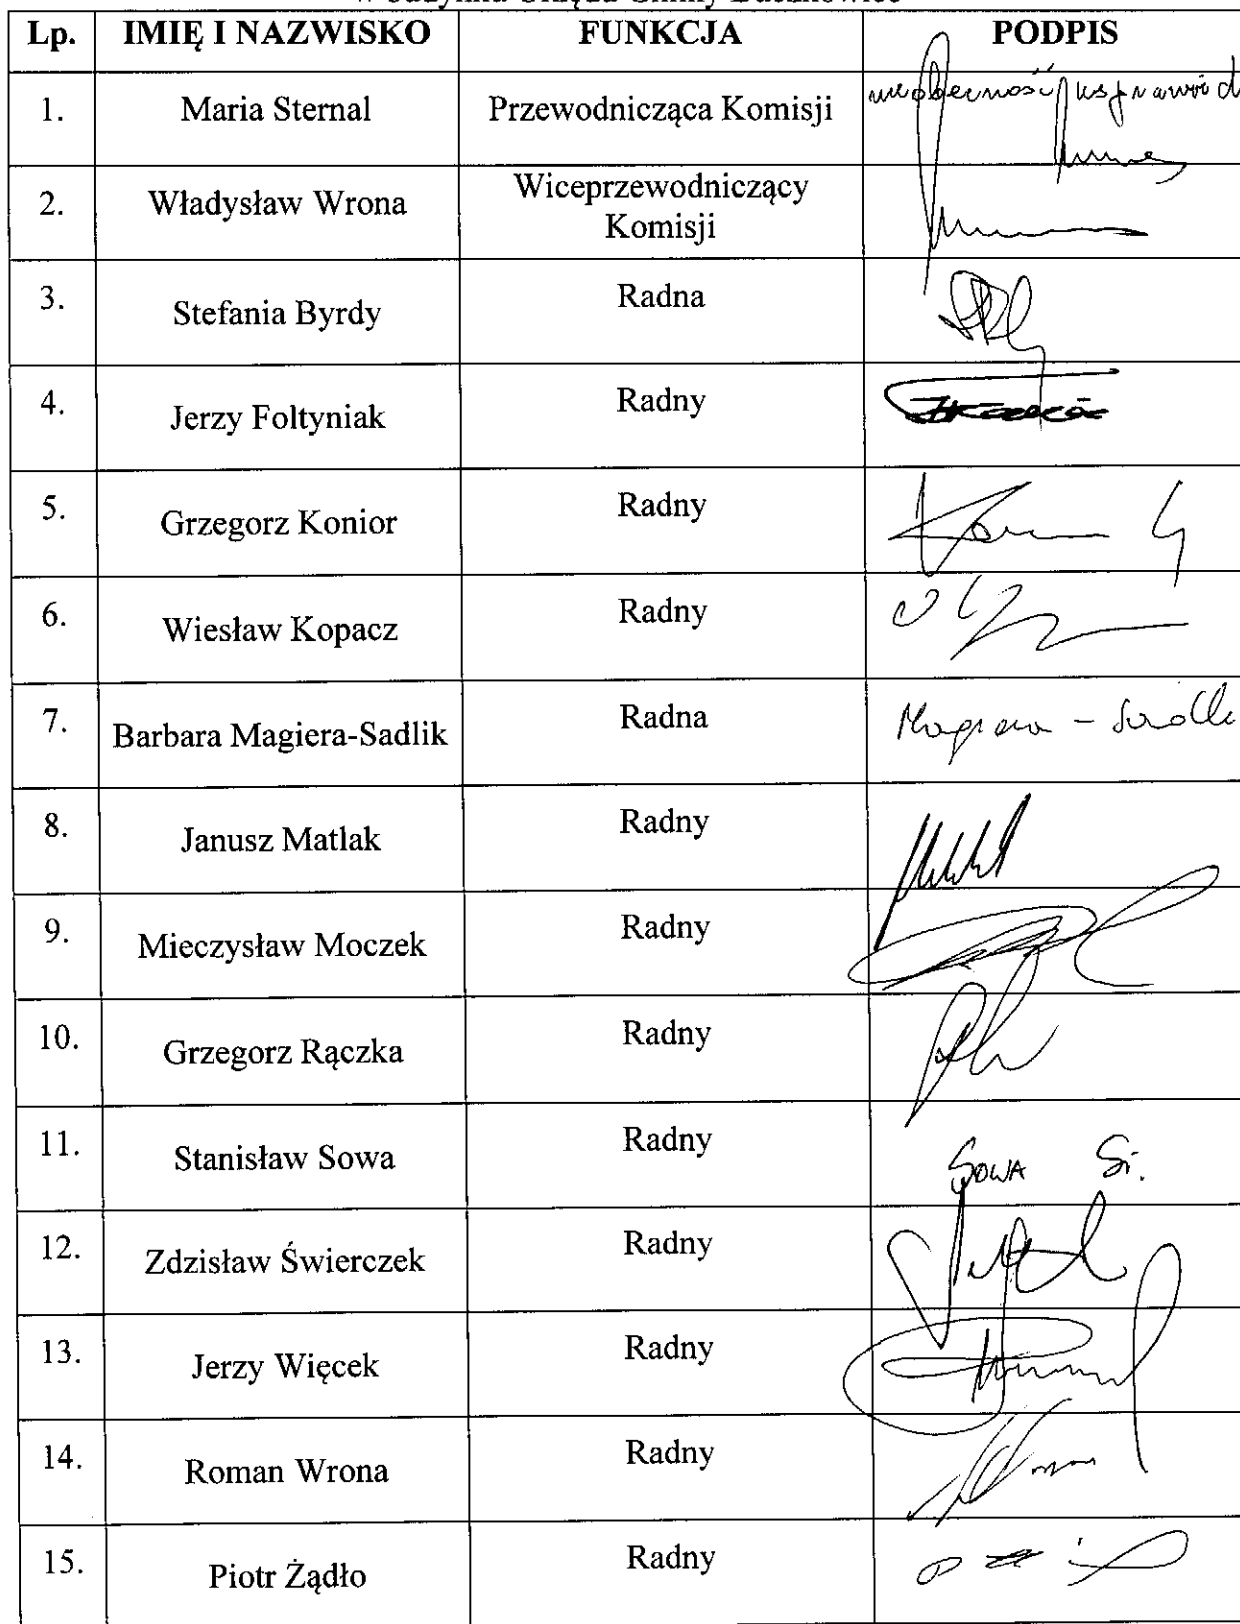 Lp. IMIĘ I NAZWISKO FUNKCJA PODPIS
1. Maria Sternal Przewodnicząca Komisji nieobecność
2. Władysław Wrona Wiceprzewodniczący
Komisji
3. Stefania Byrdy Radna
4. Jerzy Foltyniak Radny
5. Grzegorz Konior Radny
6. Wiesław Kopacz Radny
7. Barbara Magiera-Sadlik Radna Magiera -
8. Janusz Matlak Radny
9. Mieczysław Moczek Radny
10. Grzegorz Rączka Radny
11. Stanisław Sowa Radny SOWA St.
12. Zdzisław Świerczek Radny
13. Jerzy Więcek Radny
14. Roman Wrona Radny
15. Piotr Żądło Radny